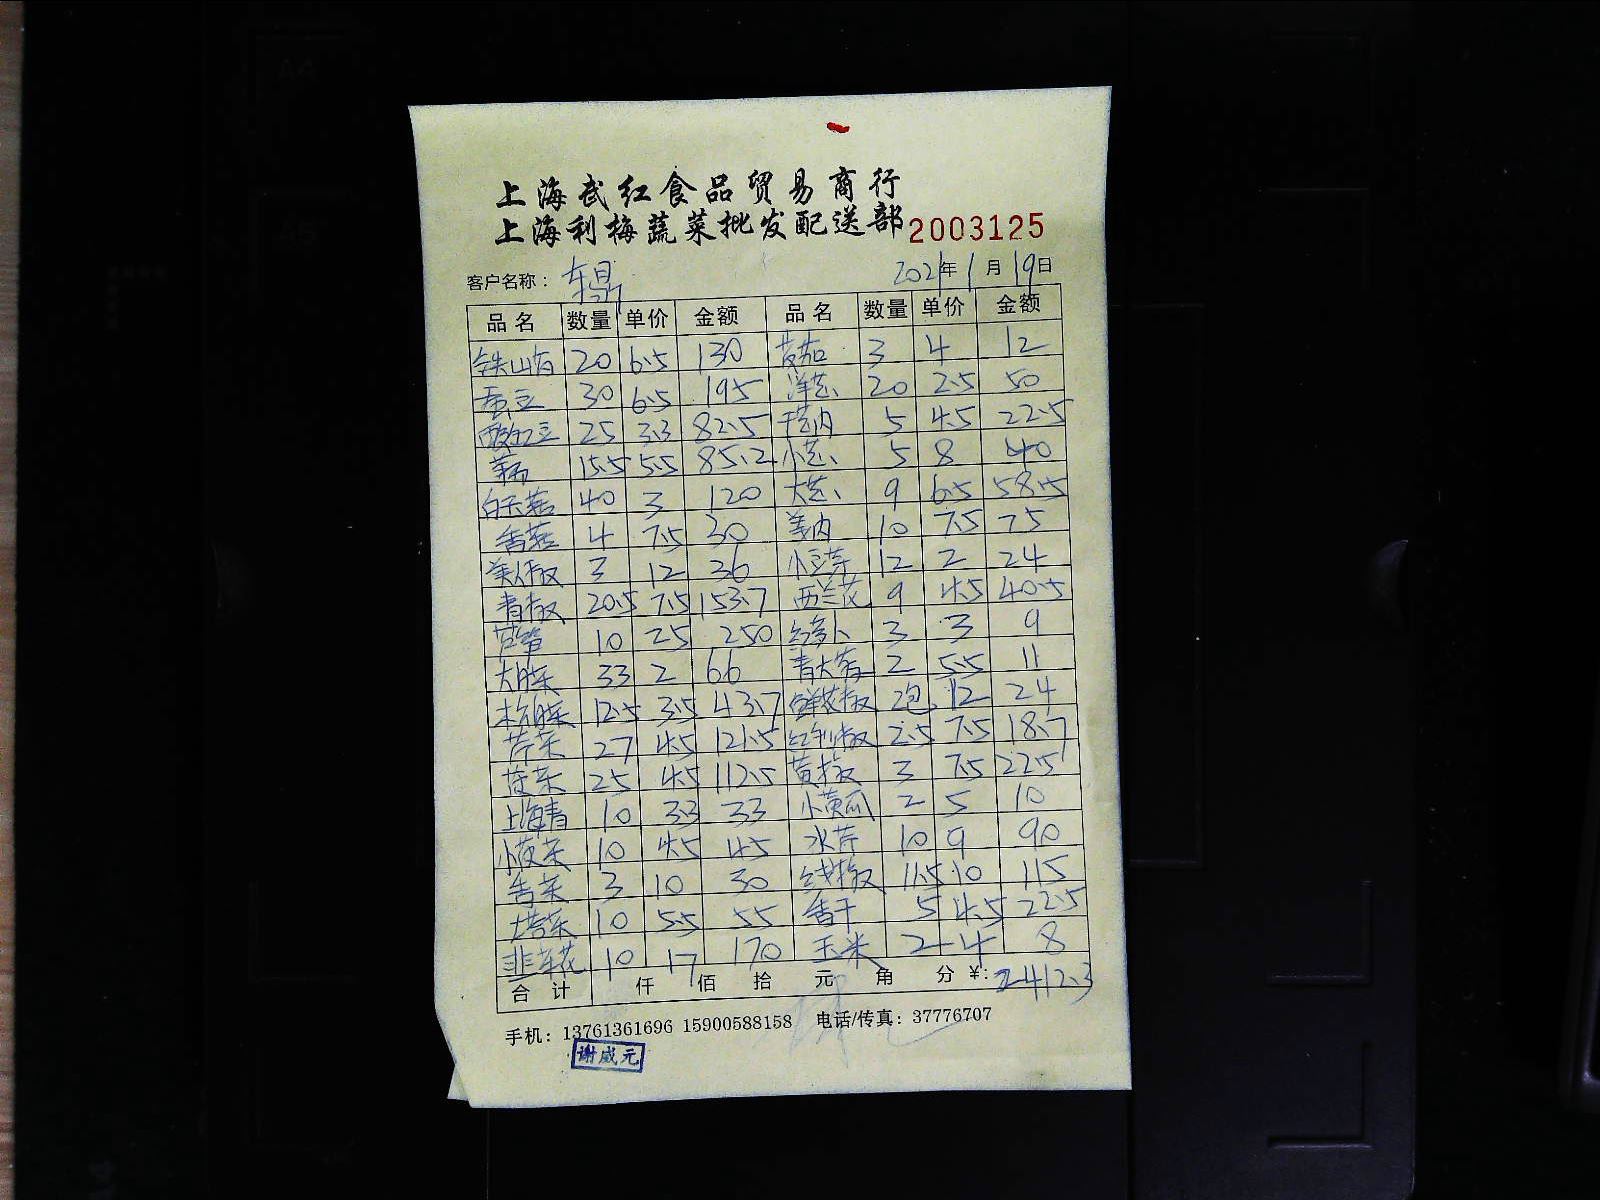 上海武红食品贸易商行
上海利梅蔬菜批发配送部 2003125
客户名称： 东昂 2021年1月19日
品名 数量 单价 金额 品名 数量 单价 金额
铁山药 20 6.5 130 茨茄 3 4 12
蚕豆 30 6.5 195 洋葱 20 2.5 50
酸豇豆 25 3.3 82.5 5 4.5 22.5
15.5 5.5 85.2 小葱 5 8 40
白玉菇 40 3 120 大葱 9 6.5 58.5
香菇 4 7.5 30 10 7.5 75
美人椒 3 12 36 小豆芽 12 2 24
青椒 20.5 7.5 153.7 西兰花 9 4.5 40.5
芦笋 10 25 250 红萝卜 3 3 9
大白菜 33 2 66 青大蒜 2 5.5 11
12.5 3.5 43.7 鲜花椒 2包 12 24
芹菜 27 4.5 121.5 红利椒 2.5 7.5 18.7
菠菜 25 4.5 112.5 黄椒 3 7.5 22.5
上海青 10 3.3 33 小黄瓜 2 5 10
小菠菜 10 4.5 45 水芹 10 9 90
香菜 3 10 30 线椒 11.5 10 115
塔菜 10 5.5 55 香干 5 4.5 22.5
韭菜花 10 17 170 玉米 2 4 8
合计 仟 佰 拾 元 角 分 ¥: 2412.3
手机：13761361696 15900588158 电话/传真：37776707
谢威元